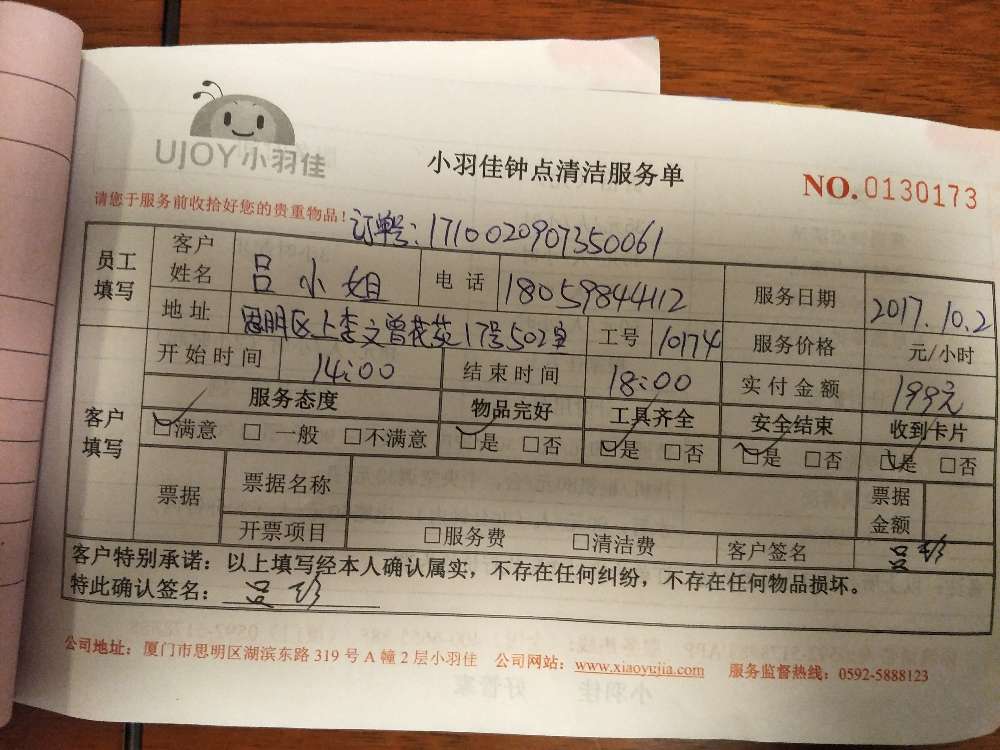 UJOY小羽佳
小羽佳钟点清洁服务单
NO.0130173
请您于服务前收拾好您的贵重物品！
订单号：1710020907350061
员工填写 客户姓名 吕小姐 电话 18059844112 服务日期 2017.10.2
地址 思明区上李文曾花苑17号502室 工号 10174 服务价格 元/小时
开始时间 14:00 结束时间 18:00 实付金额 199元
客户填写 服务态度 物品完好 工具齐全 安全结束 收到卡片
☑满意 □一般 □不满意 ☑是 □否 ☑是 □否 ☑是 □否 ☑是 □否
票据 票据名称 票据金额
开票项目 □服务费 □清洁费 客户签名 吕珍
客户特别承诺：以上填写经本人确认属实，不存在任何纠纷，不存在任何物品损坏。
特此确认签名：吕珍
公司地址：厦门市思明区湖滨东路319号A幢2层小羽佳 公司网站：www.xiaoyujia.com 服务监督热线：0592-5888123